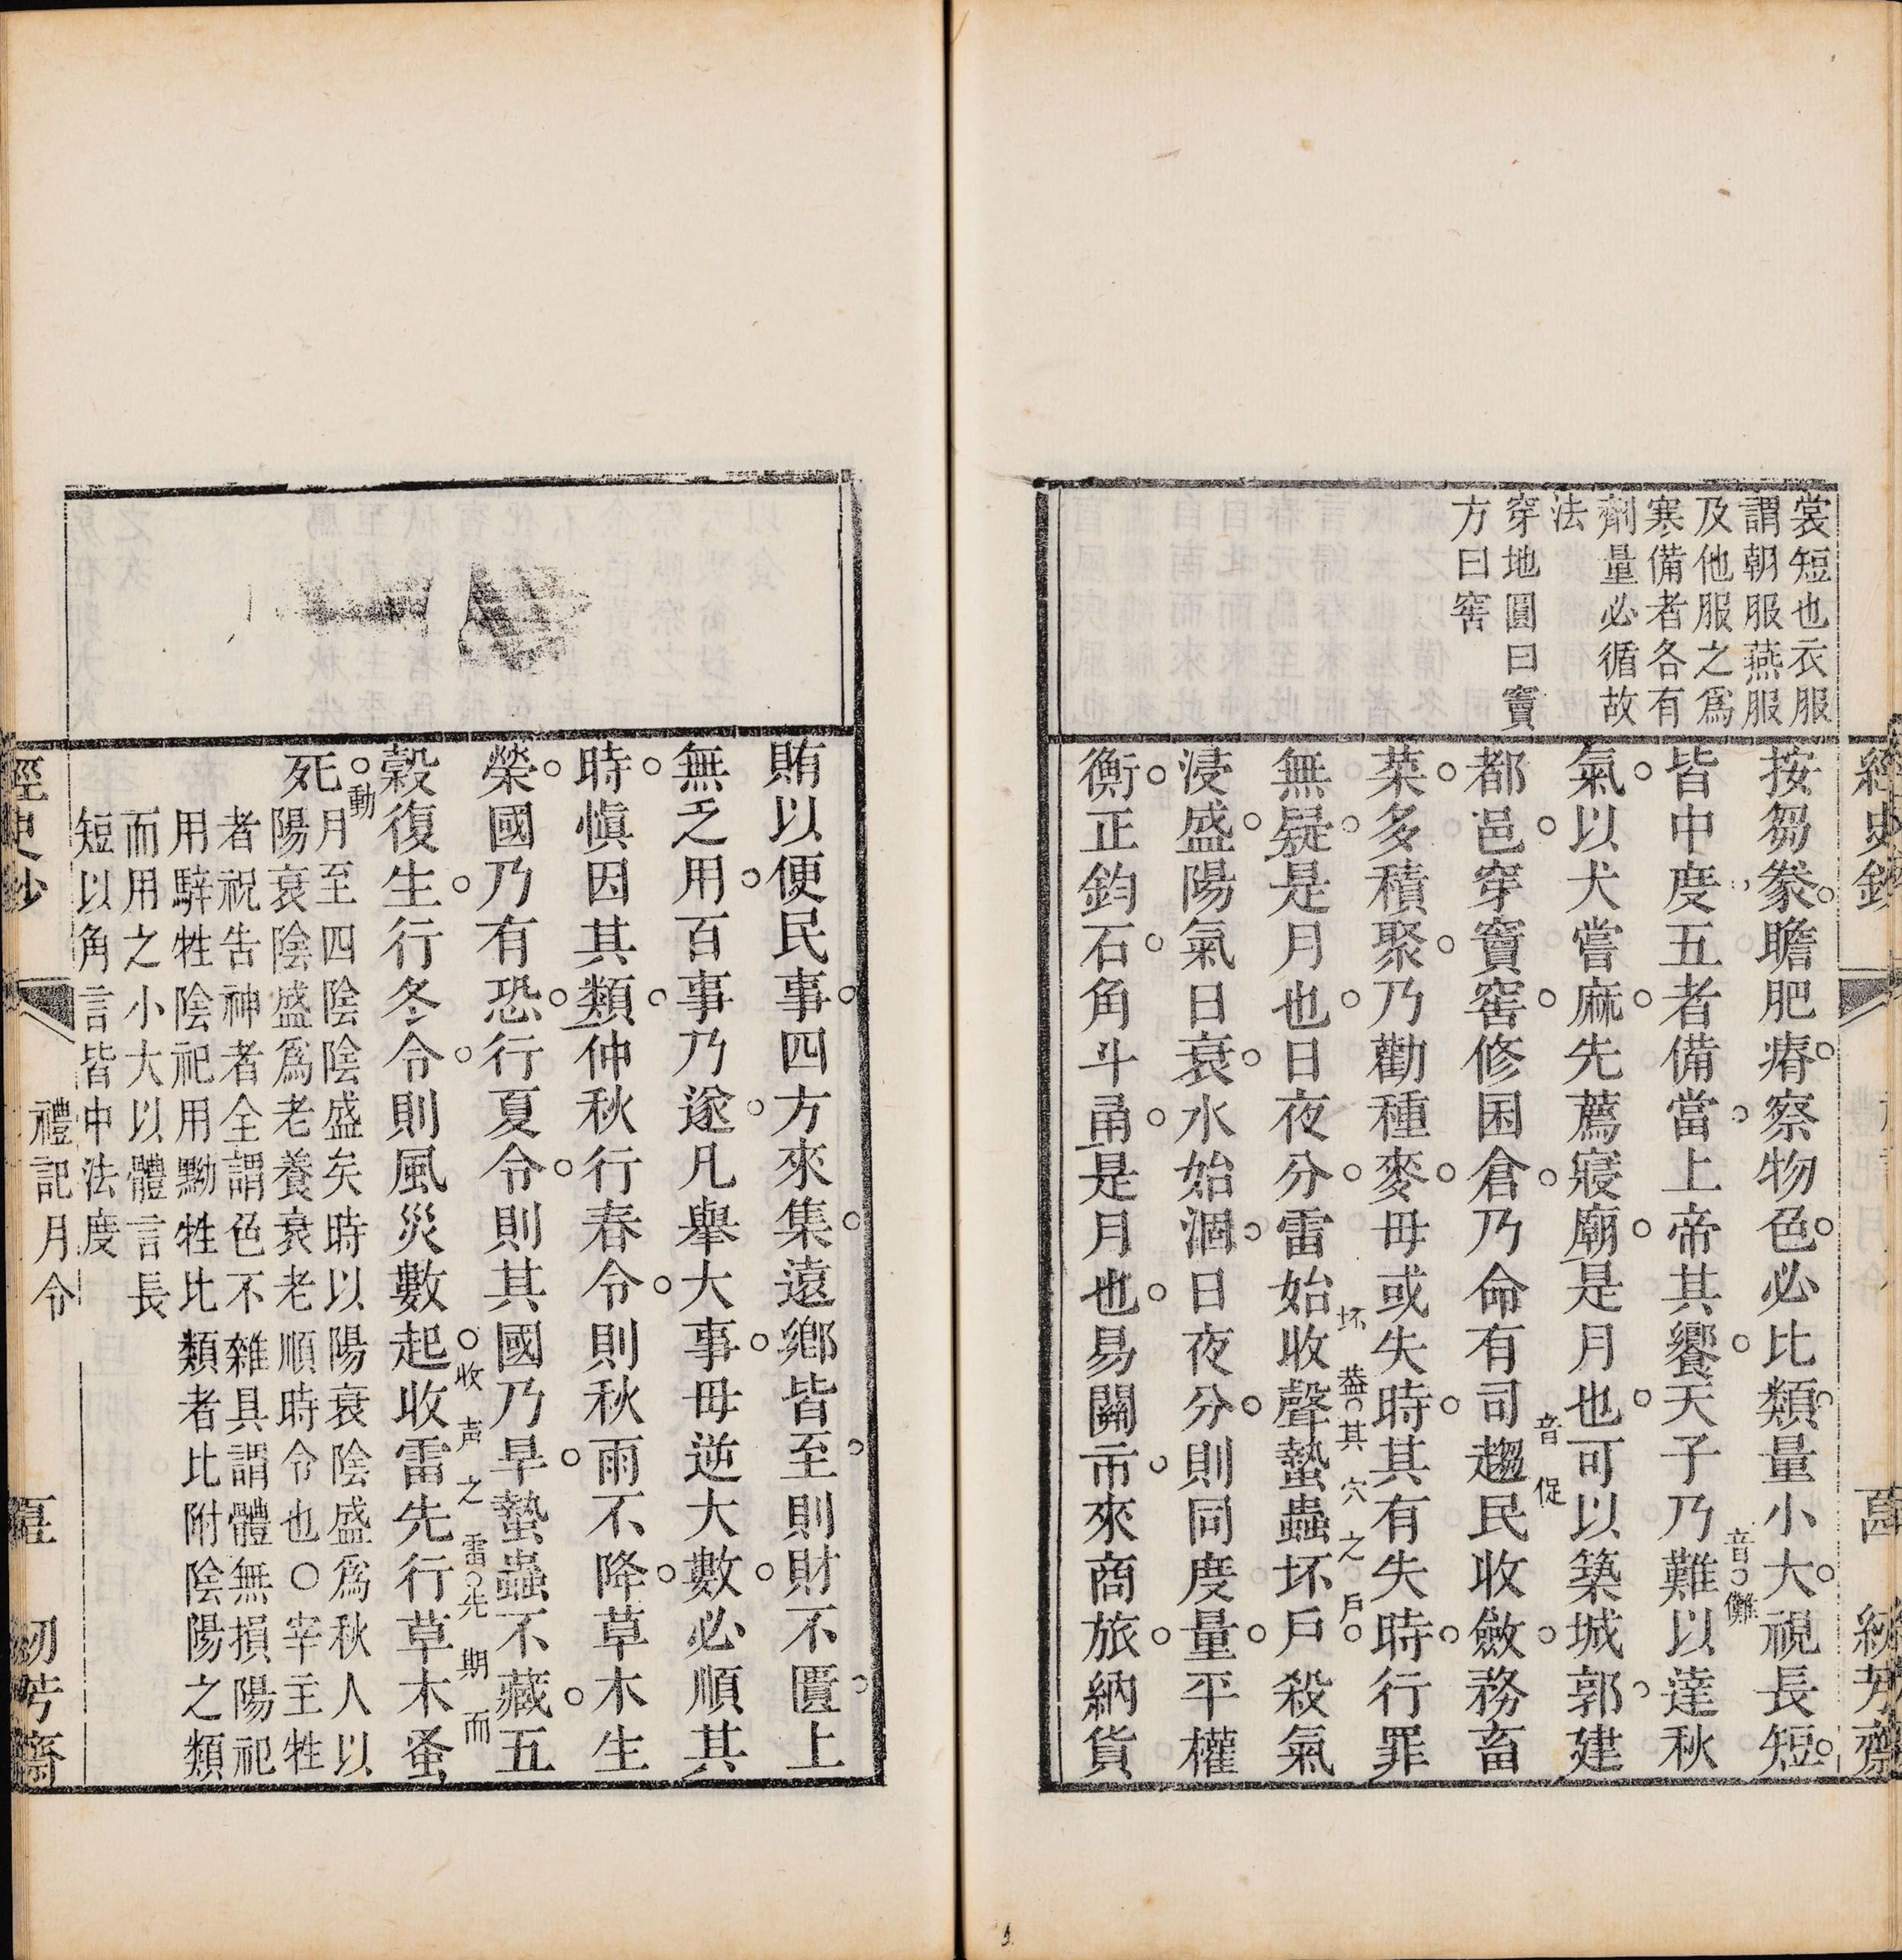 裳短也衣服
謂朝服燕服
及他服之爲
寒備者各有
劑量必循故
法
穿地圓曰竇
方曰窖
按芻豢瞻肥瘠察物色必比類量小大視長短
皆中度五者備當上帝其饗天子乃難以達秋
音儺
氣以犬嘗麻先薦寢廟是月也可以築城郭建
都邑穿竇窖修囷倉乃命有司趨民收斂務畜
音促
菜多積聚乃勸種麥毋或失時其有失時行罪
無疑是月也日夜分雷始收聲蟄蟲坏戶殺氣
坏益其穴之戶
浸盛陽氣日衰水始涸日夜分則同度量平權
衡正鈞石角斗甬是月也易關市來商旅納貨
賄以便民事四方來集遠鄉皆至則財不匱上
無乏用百事乃遂凡舉大事毋逆大數必順其
時慎因其類仲秋行春令則秋雨不降草木生
榮國乃有恐行夏令則其國乃旱蟄蟲不藏五
穀復生行冬令則風災數起收雷先行草木蚤
收声之雷先期而
動
死
月至四陰陰盛矣時以陽衰陰盛爲秋人以
陽衰陰盛爲老養衰老順時令也○宰主牲
者祝告神者全謂色不雜具謂體無損陽祀
用騂牲陰祀用黝牲比類者比附陰陽之類
而用之小大以體言長
短以角言皆中法度
經史鈔
禮記月令
紉芳齋